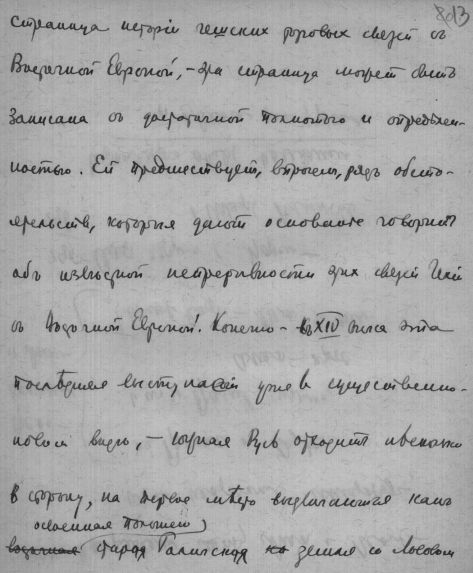 80/3
страница исторіи чешских торговых связей с
Восточной Европой, – эта страница может быть
записана с достаточной полнотою и определен-
ностью. Ей предшествует, впрочем, ряд обсто-
ятельств, которыя дают основание говорить
об известной непрерывности этих связей Чехии
с Восточной Европой. Конечно – в XIV веке эта
последняя выступает уже в существенно-
новом виде, – южная Русь отходит несколько
в сторону, на первое место выдвигаются как
освоенная Польшею
восточная старая Галичская земля со Львовом